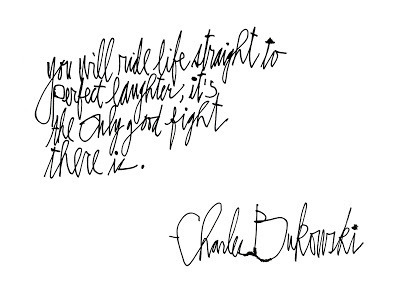 you will ride life straight to
perfect laughter, it's
the only good fight
there is.
-Charles Bukowski